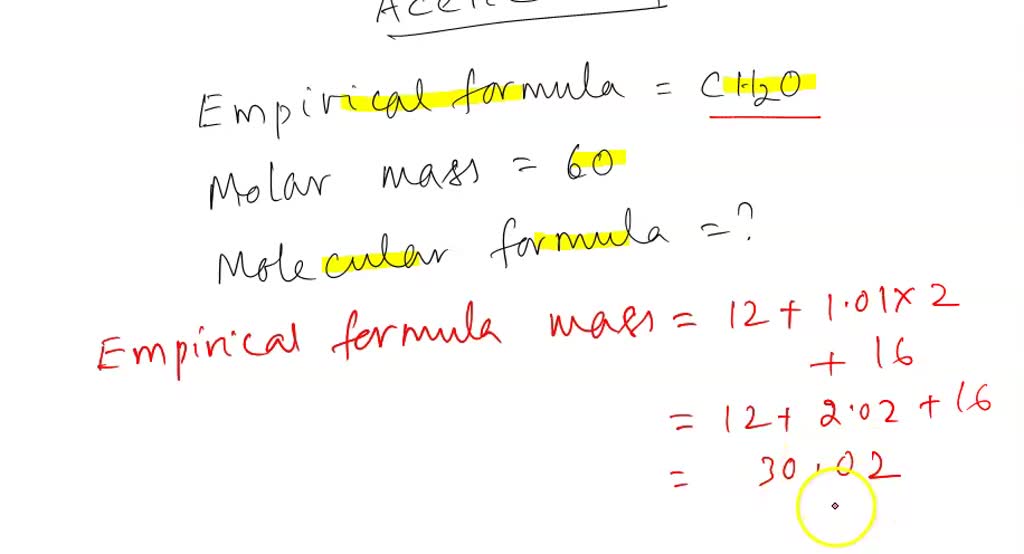 Empirical formula = CH2O
Molar mass = 60
Molecular formula = ?
Empirical formula mass = 12 + 1.01 x 2
+ 16
= 12 + 2.02 + 16
= 30.02